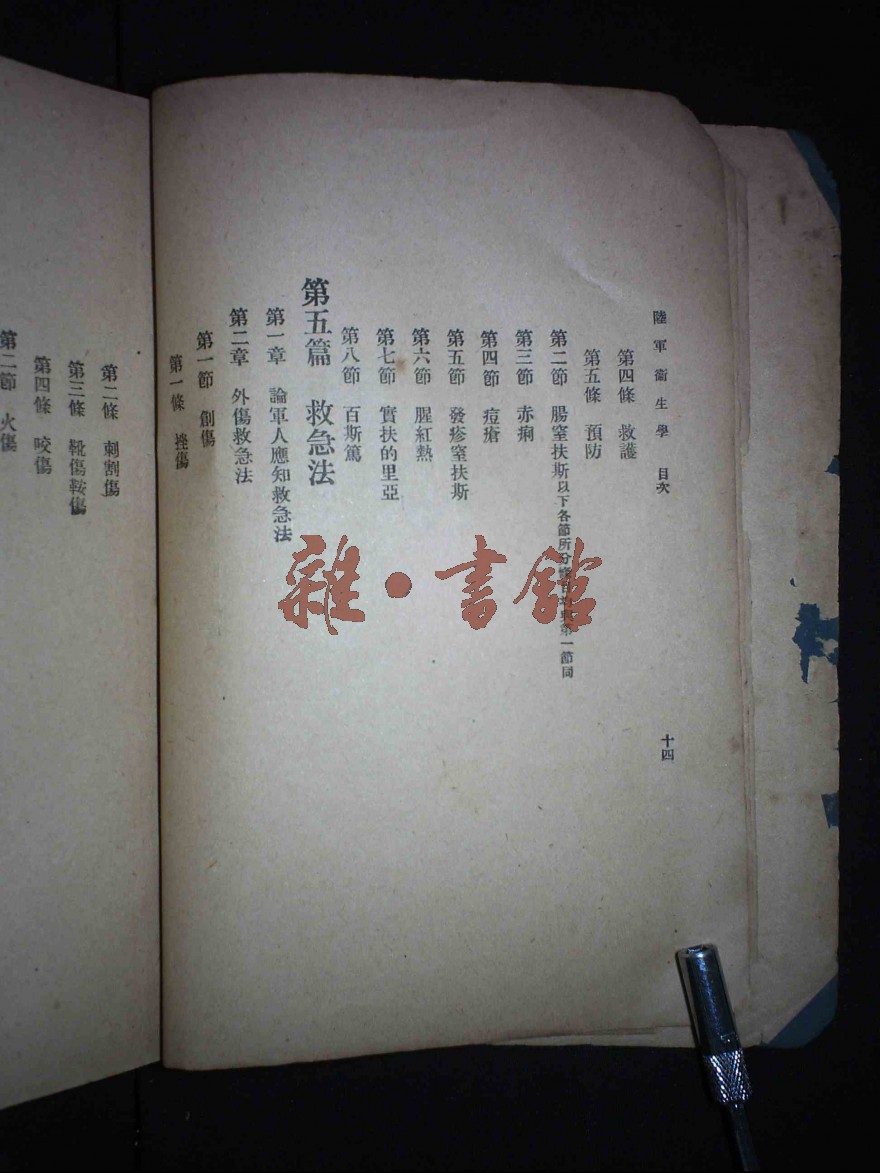 陸軍衞生學 目次
十四
第四條 救護
第五條 預防
第二節 腸窒扶斯以下各節所分條目均與第一節同
第三節 赤痢
第四節 痘瘡
第五節 發疹窒扶斯
第六節 腥紅熱
第七節 實扶的里亞
第八節 百斯篤
第五篇 救急法
第一章 論軍人應知救急法
第二章 外傷救急法
第一節 創傷
第一條 挫傷
第二條 刺割傷
第三條 靴傷鞍傷
第四條 咬傷
第二節 火傷
雜·書館